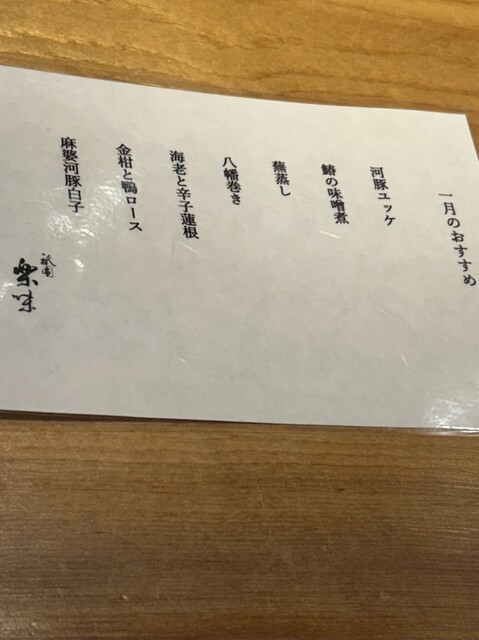 一月のおすすめ
河豚ユッケ
鰆の味噌煮
蕪蒸し
八幡巻き
海老と辛子蓮根
金柑と鴨ロース
麻婆河豚白子
祇園
楽味